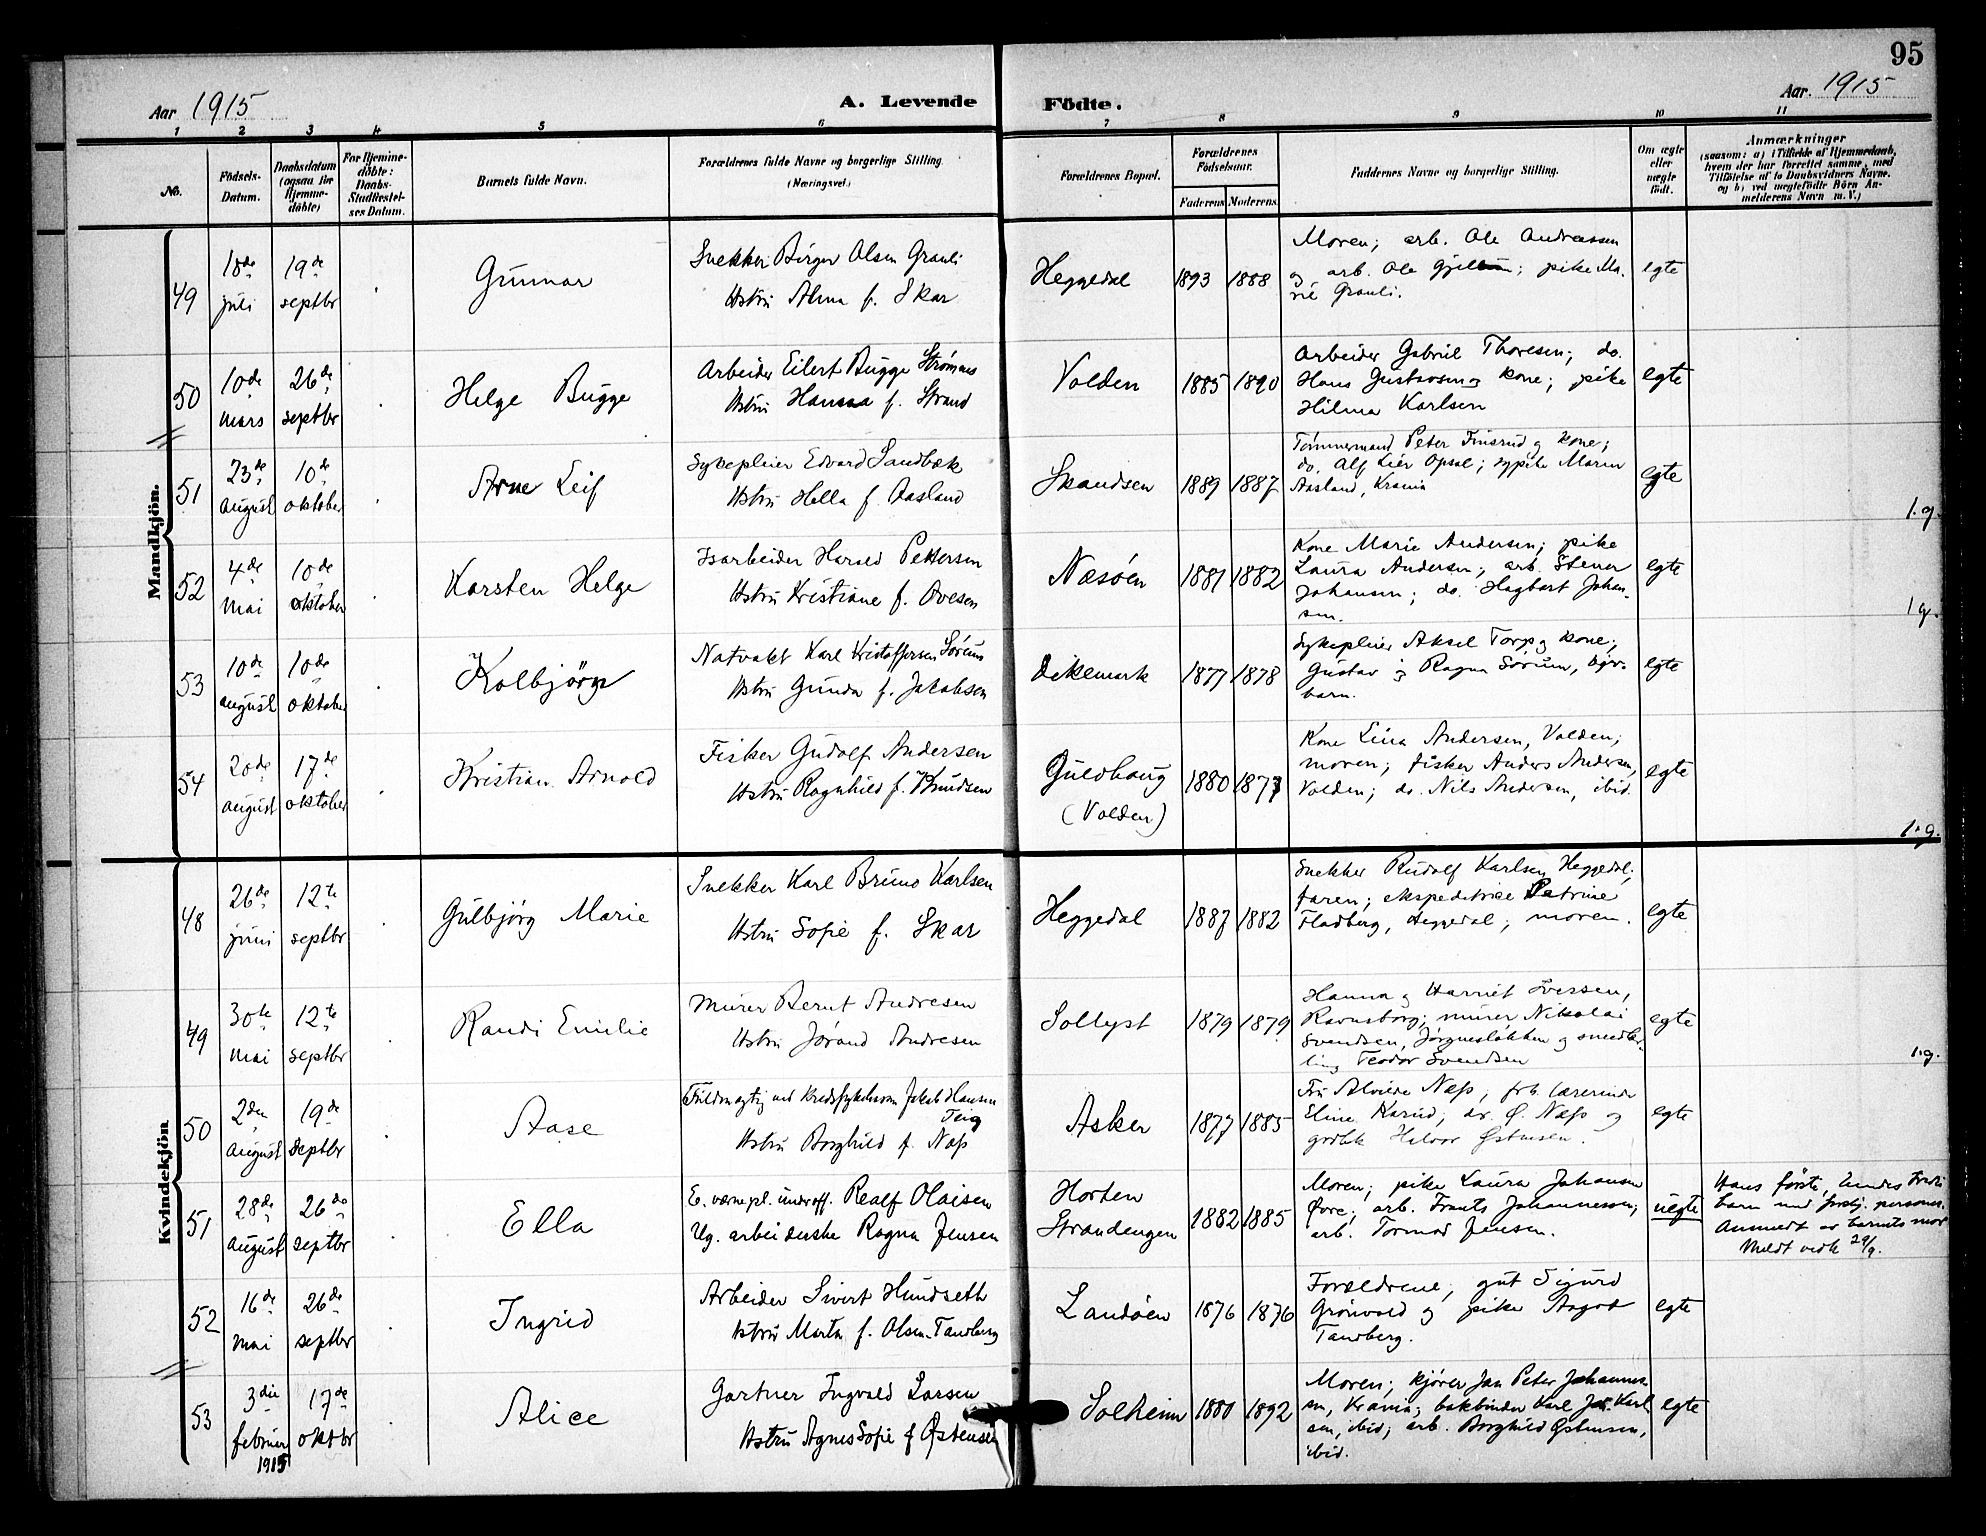 95
Aar 1915
A. Levende
Födte.
Aar. 1915
1 2 3 4 5 6 7 8 9 10 11
No.
Födsels-
Datum.
Daabsdatum
(ogsaa for
Hjemme-
döbte)
For Hjemme-
döbte:
Daabs-
Stadfæstel-
ses Datum.
Barnets fulde Navn.
Forældrenes fulde Navne og borgerlige Stilling.
(Næringsvei.)
Forældrenes Bopæl.
Forældrenes
Födselsaar.
Faderens Moderens
Faddernes Navne og borgerlige Stilling.
Om ægte
eller
uægte
födt.
Anmærkninger
(saasom: a) i Tilfælde af Hjemmedaab,
hvem der har forrettet samme, med
Tilföielse af to Daabsvidners Navne.
og b) ved uægtefödte Börn An-
melderens Navn m.V.)
Mandkjön.
49
18de
juli
19de
septbr
Gunnar
Snekker Birger Olsen Grauli
Hstru Alma f. Skar
Heggedal
1893 1888
Moren; arb. Ole Andreassen
og arb. Ole Gjellum; pike Ma-
rie Grauli.
egte
50
10de
mars
26de
septbr
Helge Bugge
Arbeider Eilert Bugge Strømnes
Hstru Hanna f. Strand
Volden
1885 1890
Arbeider Gabriel Thoresen; do.
Hans Gustavsen og kone; pike
Hilma Karlsen
egte
51
23de
august
10de
oktober
Arne Leif
Sykepleier Edvard Sandbæk
Hstru Hella f. Aasland
Skaudsen
1889 1887
Tømmermand Peter Finsrud og kone;
do. Alf Lier Opsal; sypike Maren
Aasland, Krania
egte
1.g.
52
4de
mai
10de
oktober
Karsten Helge
Isarbeider Harald Pettersen
Hstru Kristiane f. Ovesen
Næsøen
1881 1882
Kone Marie Andersen; pike
Laura Andersen; arb. Stener
Johansen; do. Hagbart Johan-
sen.
egte
1g.
53
10de
august
10de
oktober
Kolbjörn
Natvakt Karl Kristoffersen Sørum
Hstru Gunda f. Jakobsen
Dikemark
1877 1878
Sykepleier Aksel Torp og kone;
Gustav og Ragna Sørum,
barn.
egte
54
20de
august
17de
oktober
Kristian Arnold
Fisker Gudolf Andersen
Hstru Ragnhild f. Knudsen
Guldhaug
(Volden)
1880 1877
Kone Lina Andersen, Volden;
moren; fisker Anders Andersen,
Volden; do. Nils Andersen, ibid.
egte
1.g.
Kvindekjön
48
26de
juni
12te
septbr
Gulbjørg Marie
Snekker Karl Bruno Karlsen
Hstru Sofie f. Skar
Heggedal
1887 1882
Snekker Rudolf Karlsen, Heggedal;
faren; ekspeditrice Petrine
Fladberg, Heggedal; moren.
egte
49
30te
mai
12te
septbr
Randi Emilie
Murer Bernt Andresen
Hstru Jørand Andresen
Sollyst
1879 1879
Hanna og Harriet Iversen,
Ravnsborg; murer Nikolai
Svendsen, Jørgensløkken og smedlær-
ling Teodor Svendsen
egte
1.g.
50
2den
august
19de
septbr
Aase
Fuldmægtig ved Kredssykekassen Jakob Hansen
Teig
Hstru Borghild f. Næss
Asker
1877 1885
Fru Alvilde Næss; frk. lærerinde
Eline Karud; dr. Ø. Næss og
grdbk Helvor Østensen.
egte
51
28de
august
26de
septbr
Ella
E. værnepl. underoff. Realf Olaisen
Ug. arbeiderske Ragna Jensen
Horten
Strandengen
1882 1885
Moren; pike Laura Johansen
Øvre; arb. Frants Johannessen;
arb. Tormod Jensen.
uegte
Hans første, hendes tredie
barn med forskj. personer.
Anmeldt av barnets mor
Meldt vedk 29/9.
52
16de
mai
26de
septbr
Ingrid
Arbeider Sivert Hundseth
Hstru Marta f. Olsen-Tandberg
Landøen
1876 1876
Forældrene; gut Sigurd
Grönvold og pike Aagot
Tandberg.
egte
53
3die
februar
1915
17de
oktbr
Alice
Gartner Ingvald Larsen
Hstru Agnes Sofie f Østensen
Solheim
1880 1892
Moren; kjører Jan Peter Johannes-
sen, Krania; bokbinder Karl Joh. Karl-
sen, ibid; arb. Borghild Østensen,
ibid.
egte